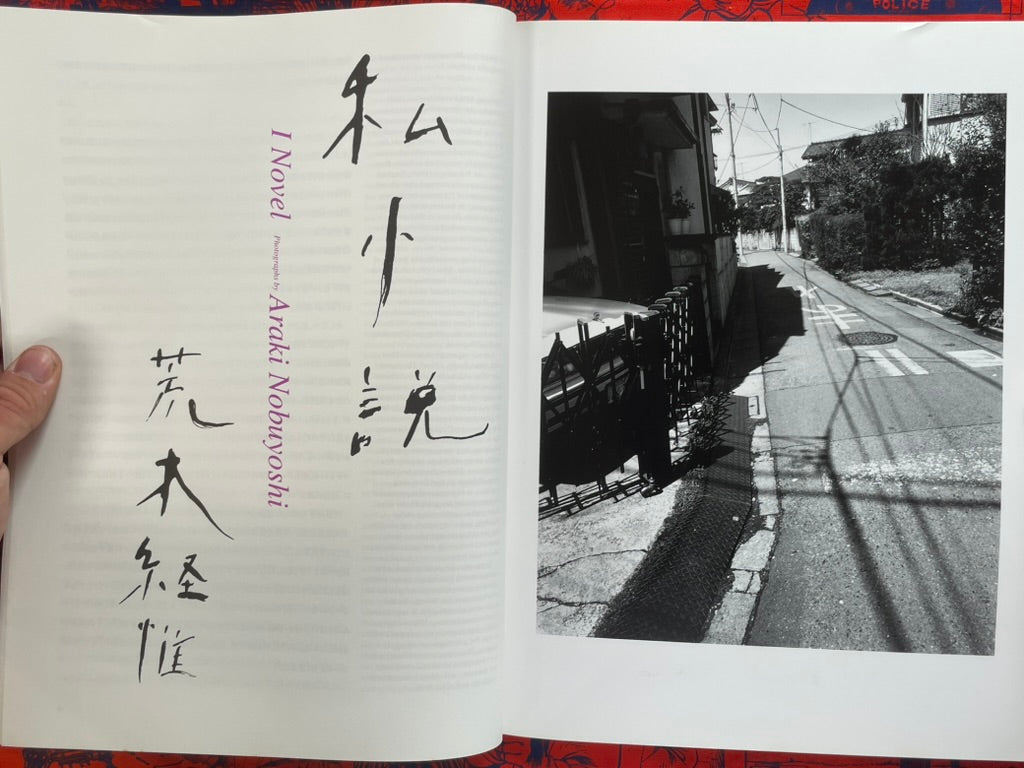 私小説
I Novel Photographs by Araki Nobuyoshi
荒木経惟
POLICE